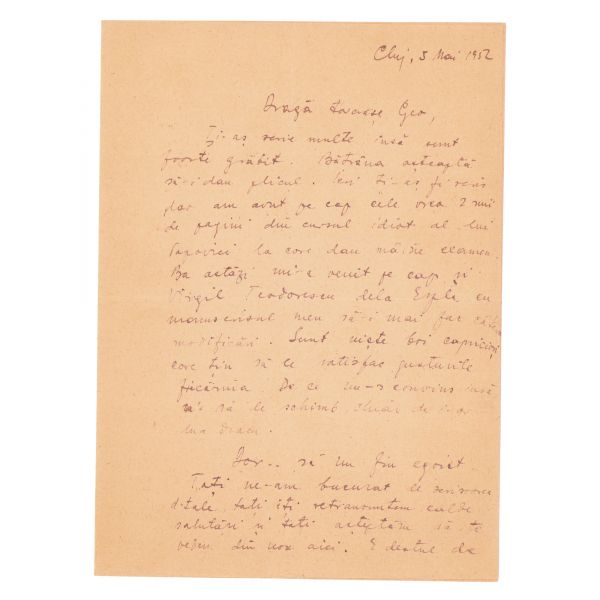 Cluj, 5 Mai 1952
Dragă tovarășe Geo,
Ți-aș scrie multe însă sunt
foarte grăbit. Bătrâna așteaptă
să-i dau plicul. Ieri ți-aș fi scris
dar am avut pe cap cele vreo 2 mii
de pagini din cursul idiot al lui
Popovici la care dau mâine examen.
Ba astăzi mi-a venit pe cap și
Virgil Teodorescu dela Espla cu
manuscrisul meu să-i mai fac câteva
modificări. Sunt niște boi capricioși
care țin să le satisfac gusturile
fiecăruia. De ce nu-s convins însă
să le schimb chiar de
dracu.
Dar.. să nu fiu egoist.
Toți ne-am bucurat de scrisoarea
d-tale, toți iți retransmitem calde
salutări și toți așteptăm să te
vedem din nou aici. E destul de